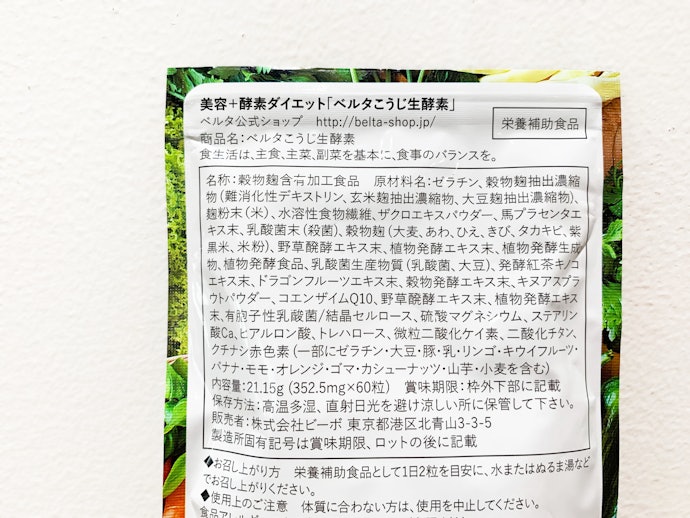 美容+酵素ダイエット「ベルタこうじ生酵素」
ベルタ公式ショップ http://belta-shop.jp/
栄養補助食品
商品名:ベルタこうじ生酵素
食生活は、主食、主菜、副菜を基本に、食事のバランスを。
名称:穀物麹含有加工食品 原材料名:ゼラチン、穀物麹抽出濃縮
物(難消化性デキストリン、玄米麹抽出濃縮物、大豆麹抽出濃縮物)、
麹粉末(米)、水溶性食物繊維、ザクロエキスパウダー、馬プラセンタエ
キス末、乳酸菌末(殺菌)、穀物麹(大麦、あわ、ひえ、きび、タカキビ、紫
黒米、米粉)、野草醗酵エキス末、植物発酵エキス末、植物発酵生成
物、植物発酵食品、乳酸菌生産物質(乳酸菌、大豆)、発酵紅茶キノコ
エキス末、ドラゴンフルーツエキス末、穀物発酵エキス末、キヌアスプラ
ウトパウダー、コエンザイムQ10、野草醗酵エキス末、植物発酵エキス
末、有胞子性乳酸菌/結晶セルロース、硫酸マグネシウム、ステアリン
酸Ca、ヒアルロン酸、トレハロース、微粒二酸化ケイ素、二酸化チタン、
クチナシ赤色素(一部にゼラチン・大豆・豚・乳・リンゴ・キウイフルーツ・
バナナ・モモ・オレンジ・ゴマ・カシューナッツ・山芋・小麦を含む)
内容量:21.15g(352.5mg×60粒) 賞味期限:枠外下部に記載
保存方法:高温多湿、直射日光を避け涼しい所に保管して下さい。
販売者:株式会社ビーボ 東京都港区北青山3-3-5
製造所固有記号は賞味期限、ロットの後に記載
◆お召し上がり方 栄養補助食品として1日2粒を目安に、水またはぬるま湯など
でお召し上がりください。
◆使用上のご注意 体質に合わない方は、使用を中止してください。